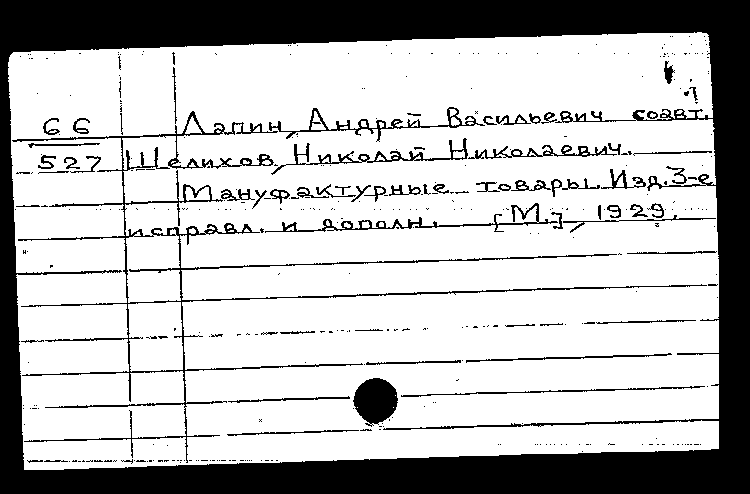 66 Лапин, Андрей Васильевич соавт.
527 Шелихов, Николай Николаевич.
Мануфактурные товары. Изд. 3-е
исправл. и дополн. [М.], 1929.